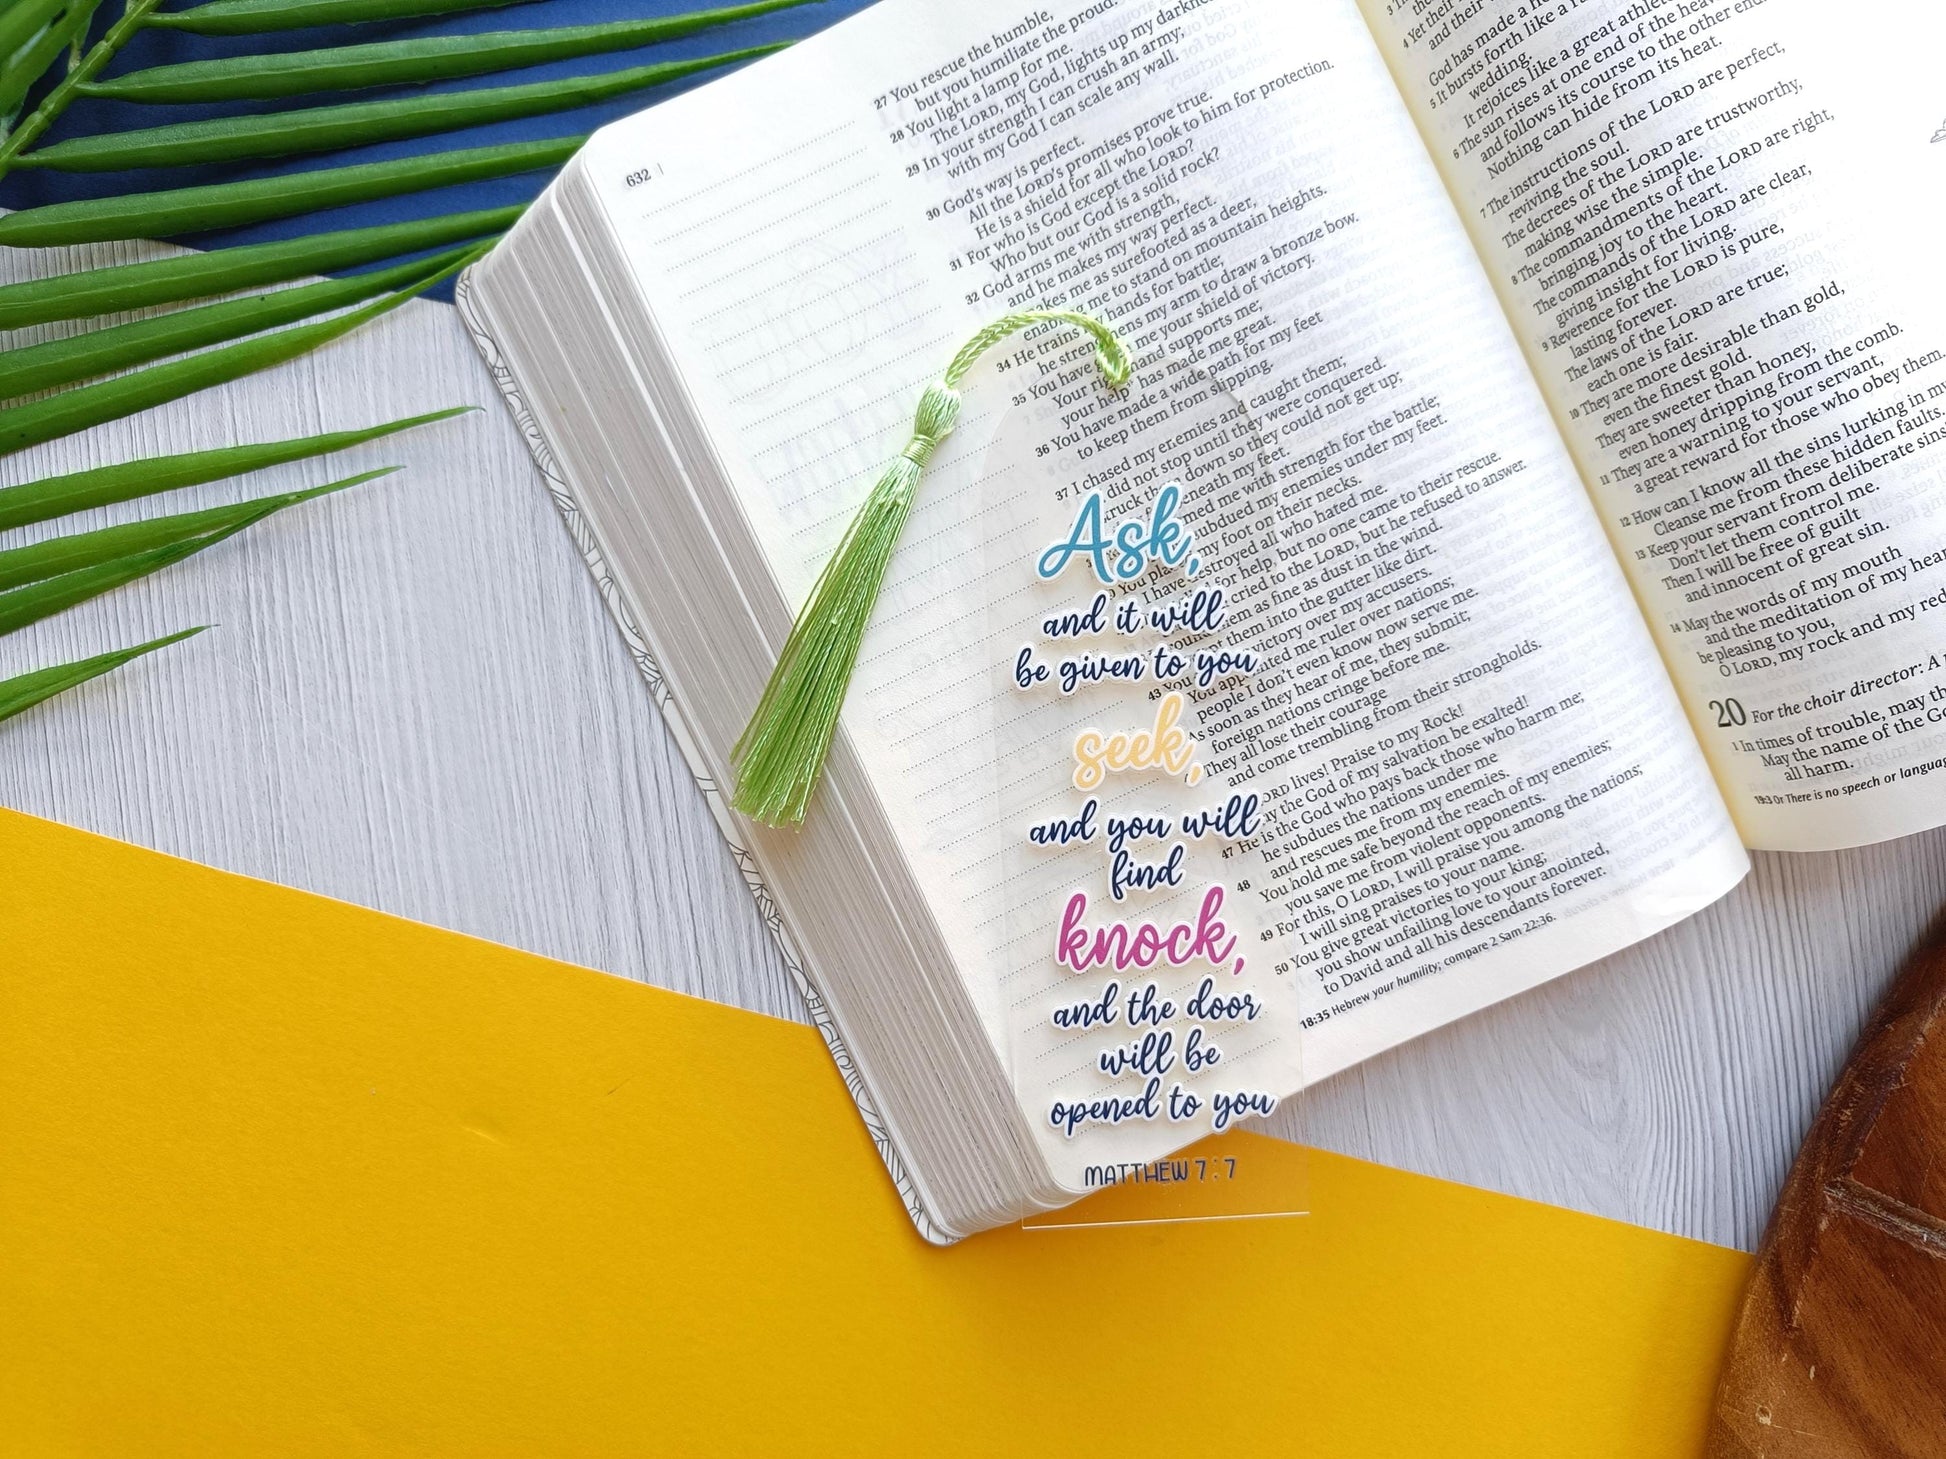 632 |
27 You rescue the humble,
but you humiliate the proud.
28 You light a lamp for me.
The LORD, my God, lights up my darkness.
29 In your strength I can crush an army;
with my God I can scale any wall.
30 God's way is perfect.
All the LORD's promises prove true.
He is a shield for all who look to him for protection.
31 For who is God except the LORD?
Who but our God is a solid rock?
32 God arms me with strength,
and he makes my way perfect.
me as surefooted as a deer,
me to stand on mountain heights.
34 He trains hands for battle;
my arm to draw a bronze bow.
35 You have me your shield of victory.
Your hand supports me;
your help has made me great.
36 You have made a wide path for my feet
to keep them from slipping.
37 I chased my enemies and caught them;
did not stop until they were conquered.
down so they could not get up;
beneath my feet.
me with strength for the battle;
subdued my enemies under my feet.
my foot on their necks.
I have destroyed all who hated me.
for help, but no one came to their rescue.
cried to the LORD, but he refused to answer.
them as fine as dust in the wind.
them into the gutter like dirt.
43 You victory over my accusers.
You appointed me ruler over nations;
people I don't even know now serve me.
As soon as they hear of me, they submit;
foreign nations cringe before me.
They all lose their courage
and come trembling from their strongholds.
lives! Praise to my Rock!
the God of my salvation be exalted!
47 He is the God who pays back those who harm me;
he subdues the nations under me
48 and rescues me from my enemies.
You hold me safe beyond the reach of my enemies;
you save me from violent opponents.
49 For this, O LORD, I will praise you among the nations;
I will sing praises to your name.
50 You give great victories to your king;
you show unfailing love to your anointed,
to David and all his descendants forever.
18:35 Hebrew your humility; compare 2 Sam 22:36.
Ask,
and it will
be given to you
seek,
and you will
find
knock,
and the door
will be
opened to you
MATTHEW 7:7
4 Yet their
and their
God has made a home
5 It bursts forth like a
wedding.
It rejoices like a great athlete
6 The sun rises at one end of the
and follows its course to the other end.
Nothing can hide from its heat.
7 The instructions of the LORD are perfect,
reviving the soul.
The decrees of the LORD are trustworthy,
making wise the simple.
8 The commandments of the LORD are right,
bringing joy to the heart.
The commands of the LORD are clear,
giving insight for living.
9 Reverence for the LORD is pure,
lasting forever.
The laws of the LORD are true;
each one is fair.
10 They are more desirable than gold,
even the finest gold.
They are sweeter than honey,
even honey dripping from the comb.
11 They are a warning to your servant,
a great reward for those who obey them.
12 How can I know all the sins lurking in my
Cleanse me from these hidden faults.
13 Keep your servant from deliberate
Don't let them control me.
Then I will be free of guilt
and innocent of great sin.
14 May the words of my mouth
and the meditation of my heart
be pleasing to you,
O LORD, my rock and my
20 For the choir director: A
1 In times of trouble, may the
May the name of the
all harm.
19:3 Or There is no speech or